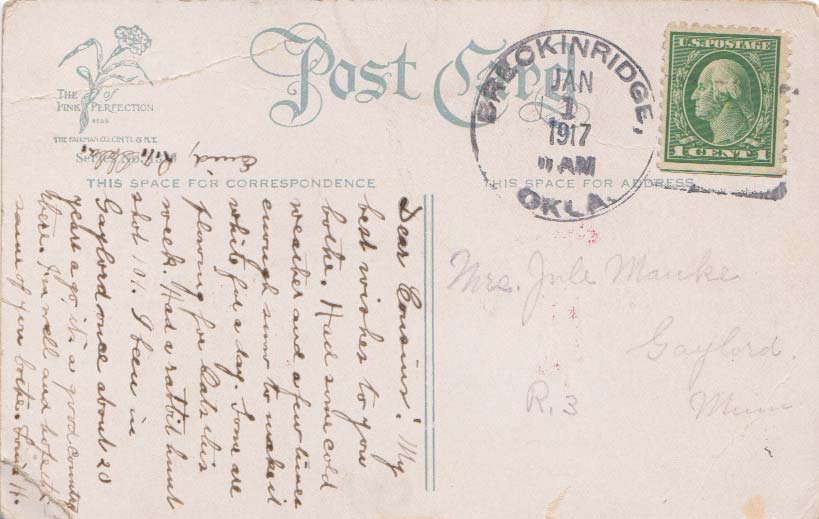 THE of
PINK PERFECTION
THE FAIRMAN CO. CIN'TI. & N.Y.
Post Card
THIS SPACE FOR CORRESPONDENCE
THIS SPACE FOR ADDRESS
BRECKINRIDGE,
JAN
1
1917
AM
OKLA.
U.S. POSTAGE
1 CENT 1
Enid,
Dear Cousins! My
best wishes to you
bothe. Had some cold
weather and a few times
enough snow to make it
white for a day. Some are
plowing for Oats this
week. Had a rabbit hunt
shot 101. I been in
Gaylord once about 20
years ago, it's a good country
there. I'm well and hope the
same of you bothe. Louis H.
Mrs. Jule Manke
Gaylord.
R. 3
Minn